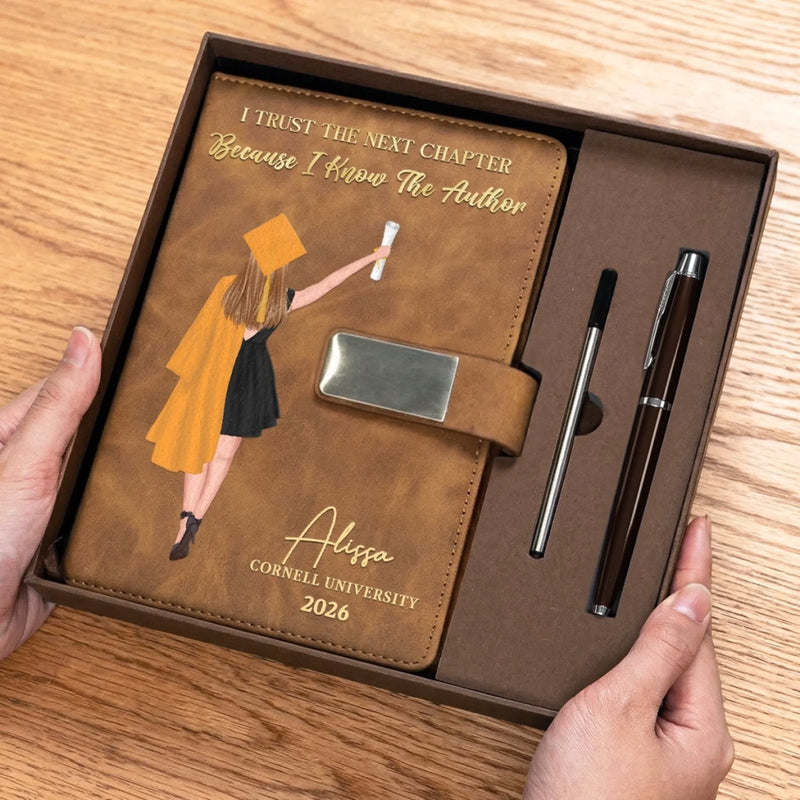 I TRUST THE NEXT CHAPTER
Because I Know The Author
Alissa
CORNELL UNIVERSITY
2026